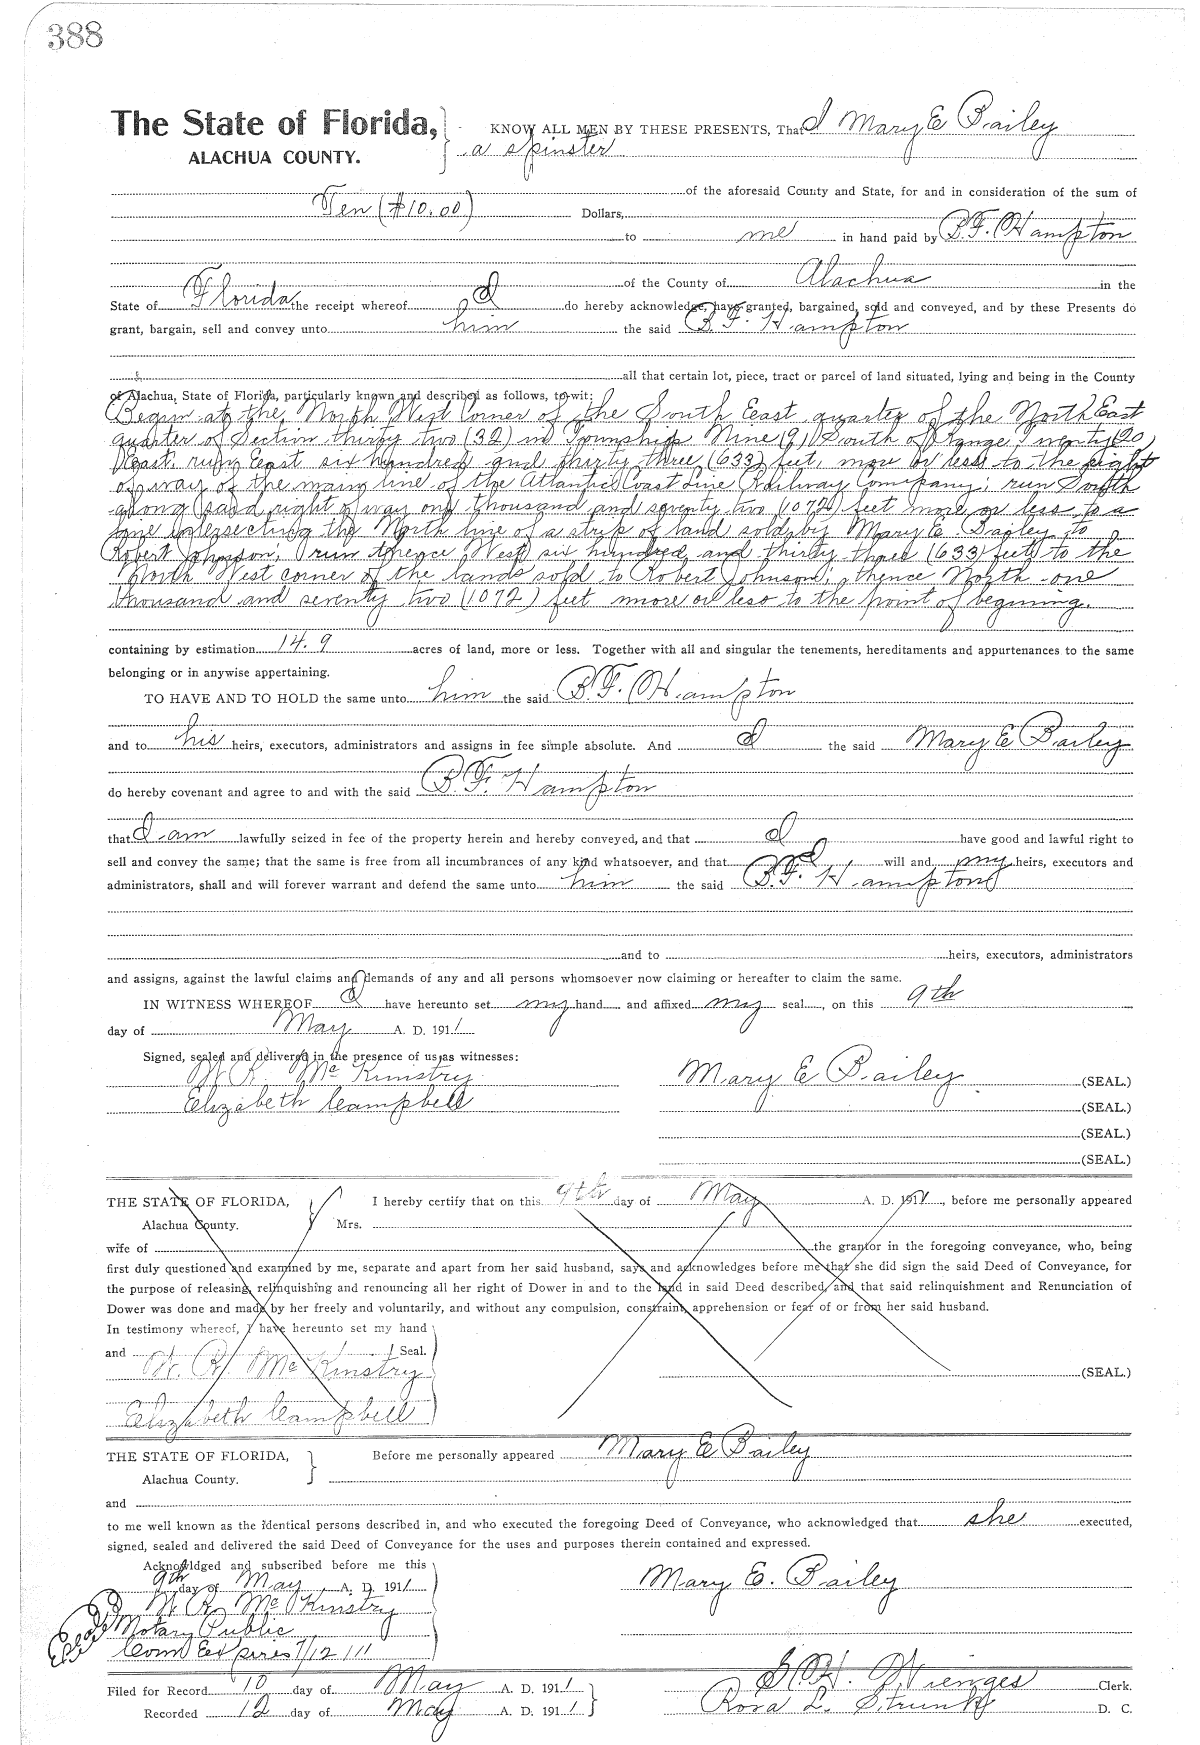 388
The State of Florida, KNOW ALL MEN BY THESE PRESENTS, That I Mary E Bailey
ALACHUA COUNTY. a spinster
of the aforesaid County and State, for and in consideration of the sum of
Ten ($10.00) Dollars,
to me in hand paid by B.F. Hampton
of the County of Alachua in the
State of Florida the receipt whereof I do hereby acknowledge, have granted, bargained, sold and conveyed, and by these Presents do
grant, bargain, sell and convey unto him the said B.F. Hampton
all that certain lot, piece, tract or parcel of land situated, lying and being in the County
of Alachua, State of Florida, particularly known and described as follows, to-wit:
Begin at the North West Corner of the South East quarter of the North East
quarter of Section thirty two (32) in Township Nine (9) South of Range Twenty (20)
East, run East six hundred and thirty three (633) feet, more or less to the right
of way of the main line of the Atlantic Coast Line Railway Company; run South
along said right of way one thousand and seventy two (1072) feet more or less to a
line intersecting the North line of a strip of land sold by Mary E Bailey to
Robert Johnson; run thence West six hundred and thirty three (633) feet to the
North West corner of the lands sold to Robert Johnson; thence North one
thousand and seventy two (1072) feet more or less to the point of begining.
containing by estimation 14.9 acres of land, more or less. Together with all and singular the tenements, hereditaments and appurtenances to the same
belonging or in anywise appertaining.
TO HAVE AND TO HOLD the same unto him the said B.F. Hampton
and to his heirs, executors, administrators and assigns in fee simple absolute. And I the said Mary E Bailey
do hereby covenant and agree to and with the said B.F. Hampton
that I am lawfully seized in fee of the property herein and hereby conveyed, and that I have good and lawful right to
sell and convey the same; that the same is free from all incumbrances of any kind whatsoever, and that I will and my heirs, executors and
administrators, shall and will forever warrant and defend the same unto him the said B.F. Hampton
and to heirs, executors, administrators
and assigns, against the lawful claims and demands of any and all persons whomsoever now claiming or hereafter to claim the same.
IN WITNESS WHEREOF I have hereunto set my hand and affixed my seal, on this 9th
day of May A. D. 1911
Signed, sealed and delivered in the presence of us as witnesses:
W. R. McKinstry Mary E Bailey (SEAL.)
Elizabeth Campbell (SEAL.)
(SEAL.)
(SEAL.)
THE STATE OF FLORIDA, I hereby certify that on this 9th day of May A. D. 1911, before me personally appeared
Alachua County. Mrs.
wife of the grantor in the foregoing conveyance, who, being
first duly questioned and examined by me, separate and apart from her said husband, says and acknowledges before me that she did sign the said Deed of Conveyance, for
the purpose of releasing, relinquishing and renouncing all her right of Dower in and to the land in said Deed described, and that said relinquishment and Renunciation of
Dower was done and made by her freely and voluntarily, and without any compulsion, constraint, apprehension or fear of or from her said husband.
In testimony whereof, I have hereunto set my hand
and Seal.
W. R. McKinstry (SEAL.)
Elizabeth Campbell
THE STATE OF FLORIDA, Before me personally appeared Mary E Bailey
Alachua County.
and
to me well known as the identical persons described in, and who executed the foregoing Deed of Conveyance, who acknowledged that she executed,
signed, sealed and delivered the said Deed of Conveyance for the uses and purposes therein contained and expressed.
Acknowledged and subscribed before me this
9th day of May A. D. 1911 Mary E. Bailey
W. R. McKinstry
Notary Public
Com Expires 7/12/11
Filed for Record 10 day of May A. D. 1911 S. H. Wienges Clerk.
Recorded 12 day of May A. D. 1911 Rosa L. Strunk D. C.